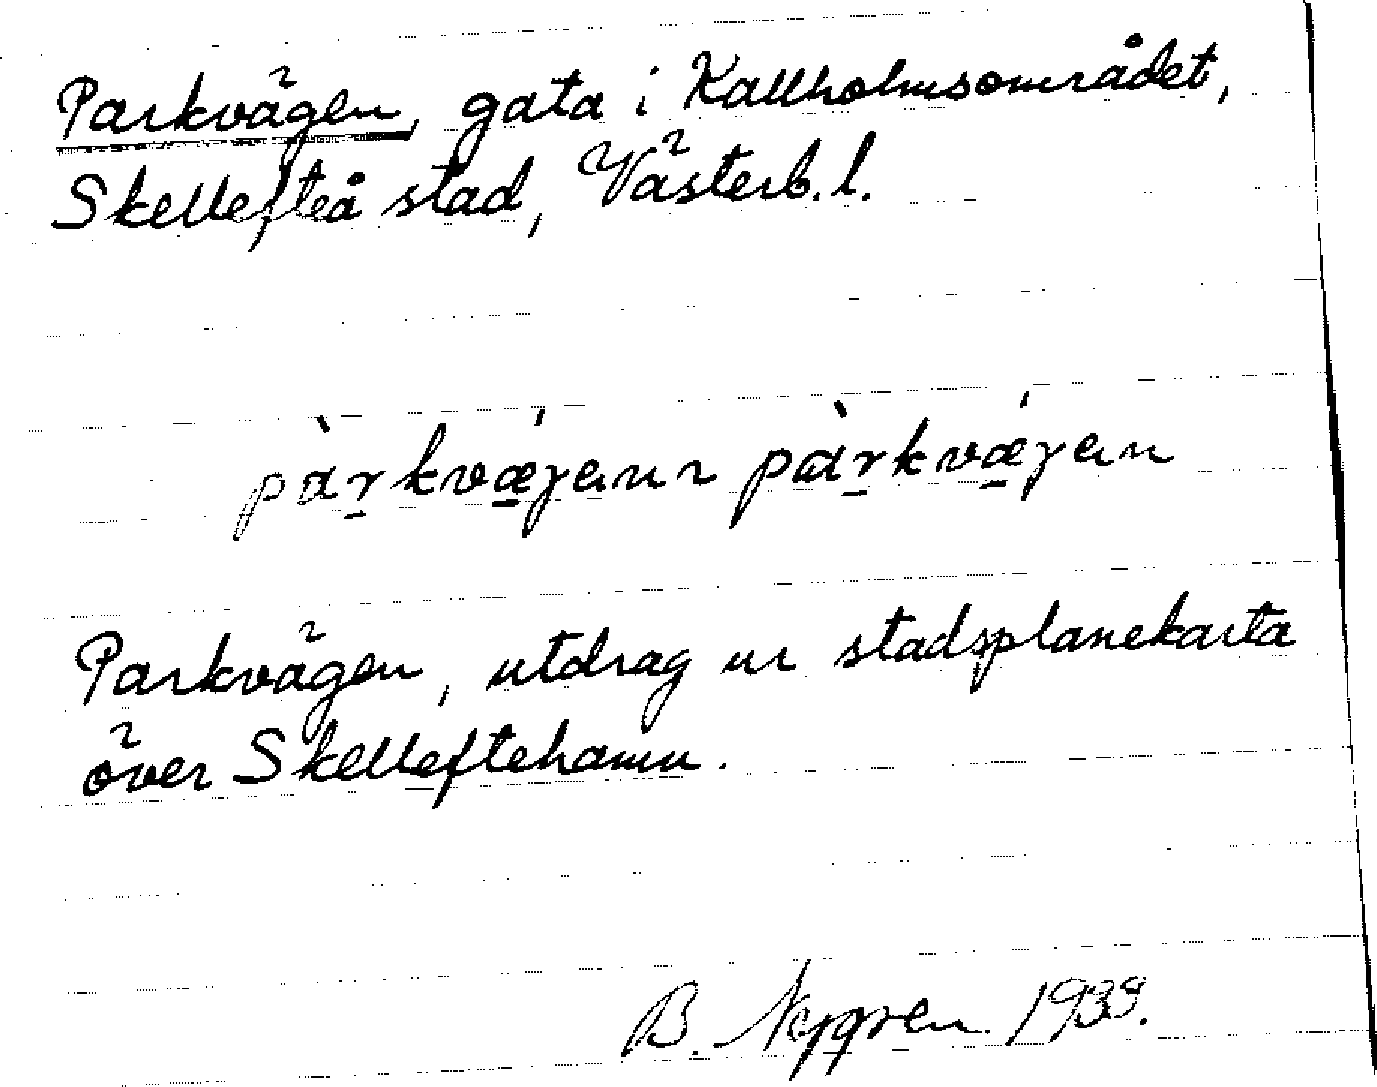 Parkvägen, gata i Kallholmsområdet,
Skellefteå stad, Västerb. l.
pàrkvǽjenn pàrkvǽjen
Parkvägen, utdrag ur stadsplanekarta
över Skelleftehamn.
B. Nygren 1939.